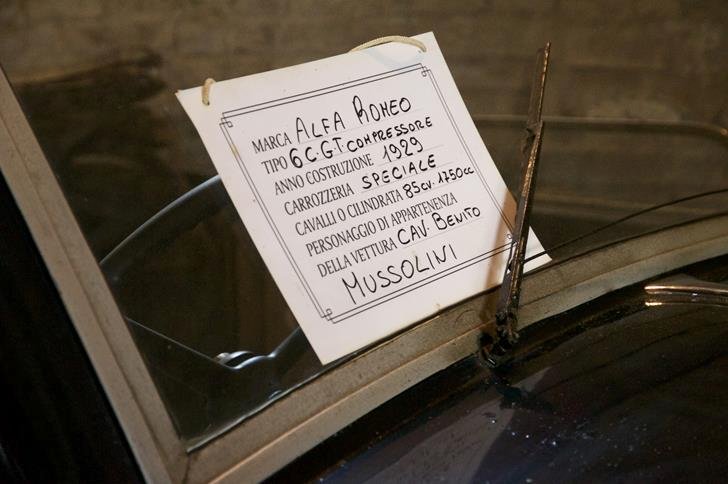 MARCA ALFA ROMEO
TIPO 6C GT COMPRESSORE
ANNO COSTRUZIONE 1929
CARROZZERIA SPECIALE
CAVALLI O CILINDRATA 85CV. 1750CC
PERSONAGGIO DI APPARTENENZA
DELLA VETTURA CAV. BENITO
MUSSOLINI